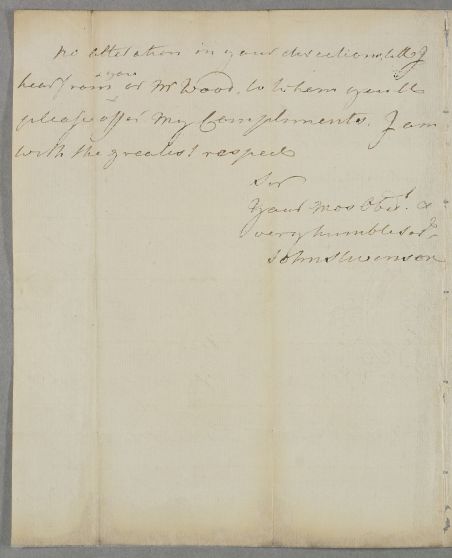 no alteration in your directions, till I
hear from you or Mr Wood, to whom you'll
please offer my Compliments. I am
with the greatest respect
Sir
Your most Obed.t &
very humble Ser.t
John Swenson